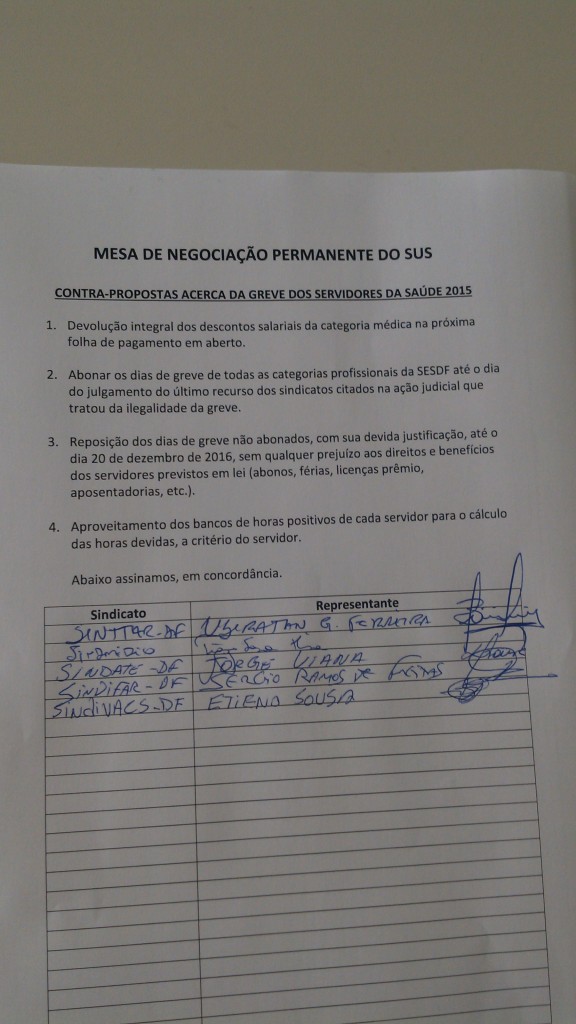 MESA DE NEGOCIAÇÃO PERMANENTE DO SUS
CONTRA-PROPOSTAS ACERCA DA GREVE DOS SERVIDORES DA SAÚDE 2015
1. Devolução integral dos descontos salariais da categoria médica na próxima
folha de pagamento em aberto.
2. Abonar os dias de greve de todas as categorias profissionais da SESDF até o dia
do julgamento do último recurso dos sindicatos citados na ação judicial que
tratou da ilegalidade da greve.
3. Reposição dos dias de greve não abonados, com sua devida justificação, até o
dia 20 de dezembro de 2016, sem qualquer prejuízo aos direitos e benefícios
dos servidores previstos em lei (abonos, férias, licenças prêmio,
aposentadorias, etc.).
4. Aproveitamento dos bancos de horas positivos de cada servidor para o cálculo
das horas devidas, a critério do servidor.
Abaixo assinamos, em concordância.
Sindicato Representante
SINTTAR-DF UBIRATAN G. FERREIRA
SINDATE-DF JORGE VIANA
SINDIFAR-DF SERGIO RAMOS DE FREITAS
SINDIVACS-DF ETIENO SOUSA